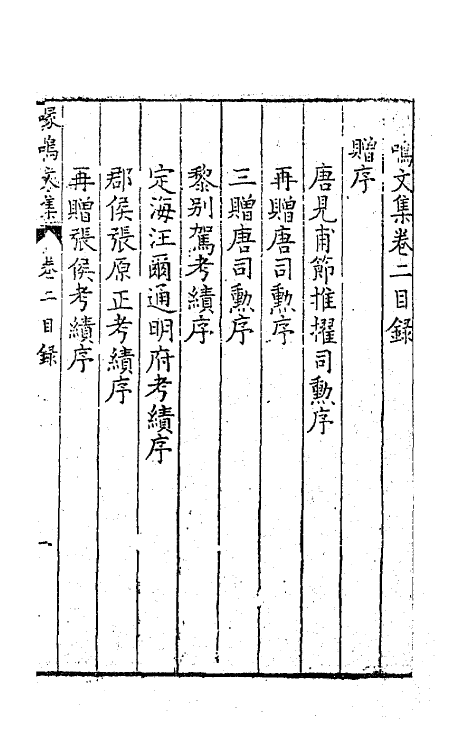 鳴文集卷二目録
贈序
唐見甫節推擢司勲序
再贈唐司勲序
三贈唐司勲序
黎别駕考績序
定海汪爾通明府考績序
郡侯張原正考績序
再贈張侯考績序
喙鳴文集
卷二目録
一